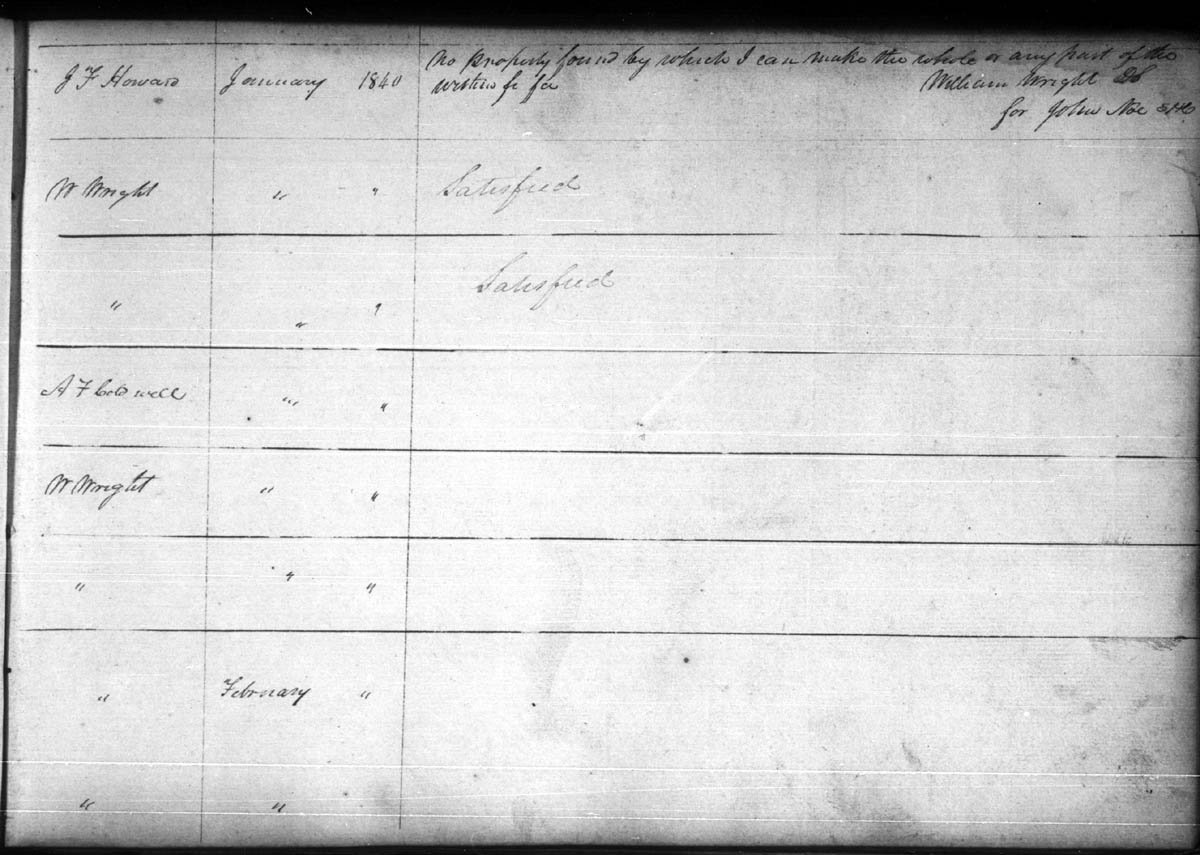 J F Howard January 1840 No property found by which I can make the whole or any part of the
within fi fa William Wright DS
for John Noe SHC
W Wright " " Satisfied
" " " Satisfied
A F Caldwell " "
W Wright " "
" " "
" February "
" "